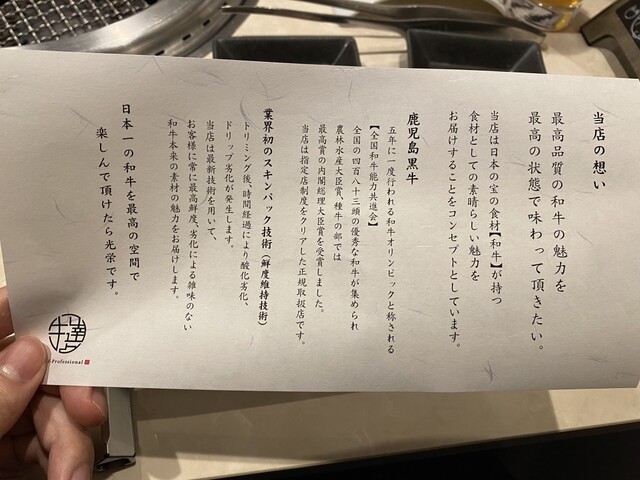 当店の想い
最高品質の和牛の魅力を
最高の状態で味わって頂きたい。
当店は日本の宝の食材【和牛】が持つ
食材としての素晴らしい魅力を
お届けすることをコンセプトとしています。
鹿児島黒牛
五年に一度行われる和牛オリンピックと称される
【全国和牛能力共進会】
全国の四百八十三頭の優秀な和牛が集められ
農林水産大臣賞、種牛の部では
最高賞の内閣総理大臣賞を受賞しました。
当店は指定店制度をクリアした正規取扱店です。
業界初のスキンパック技術(鮮度維持技術)
トリミング後、時間経過により酸化劣化、
ドリップ劣化が発生します。
当店は最新技術を用いて、
お客様に常に最高鮮度、劣化による雑味のない
和牛本来の素材の魅力をお届けします。
日本一の和牛を最高の空間で
楽しんで頂けたら光栄です。
牛達
Professional